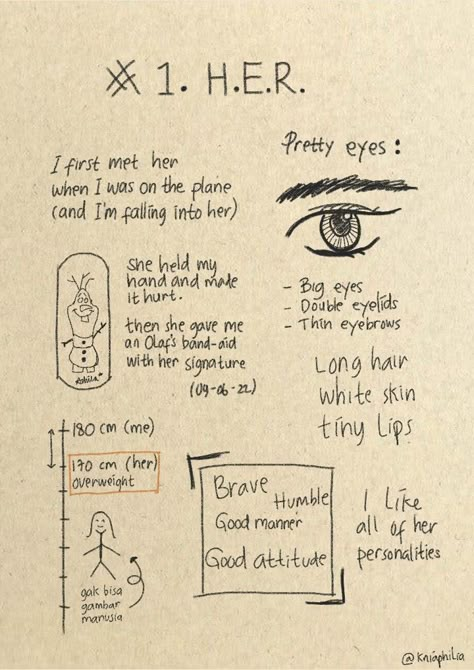 # 1. H.E.R.
I first met her
when I was on the plane
(and I'm falling into her)
She held my
hand and made
it hurt.
then she gave me
an Olaf's band-aid
with her signature
(09-06-22)
180 cm (me)
170 cm (her)
overweight
gak bisa
gambar
manusia
Pretty eyes :
- Big eyes
- Double eyelids
- Thin eyebrows
Long hair
White skin
tiny Lips
Brave
Humble
Good manner
Good attitude
I Like
all of her
personalities
@kniaphilia